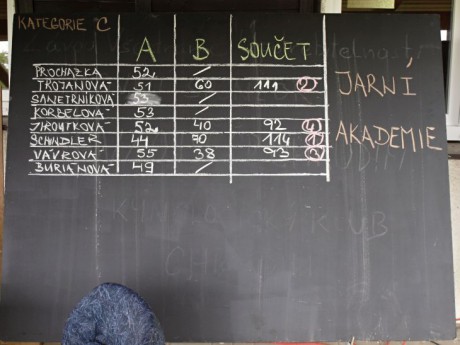 KATEGORIE °C
A B SOUČET
PROCHÁZKA 52 /
TROJANOVÁ 51 60 111 2
SANETRNÍKOVÁ 55 /
KORBELOVÁ 53 /
52 40 92 4
SCHINDLER 44 70 114 1
VÁVROVÁ 55 38 93 3
BURIÁNOVÁ 49 /
JARNÍ
AKADEMIE